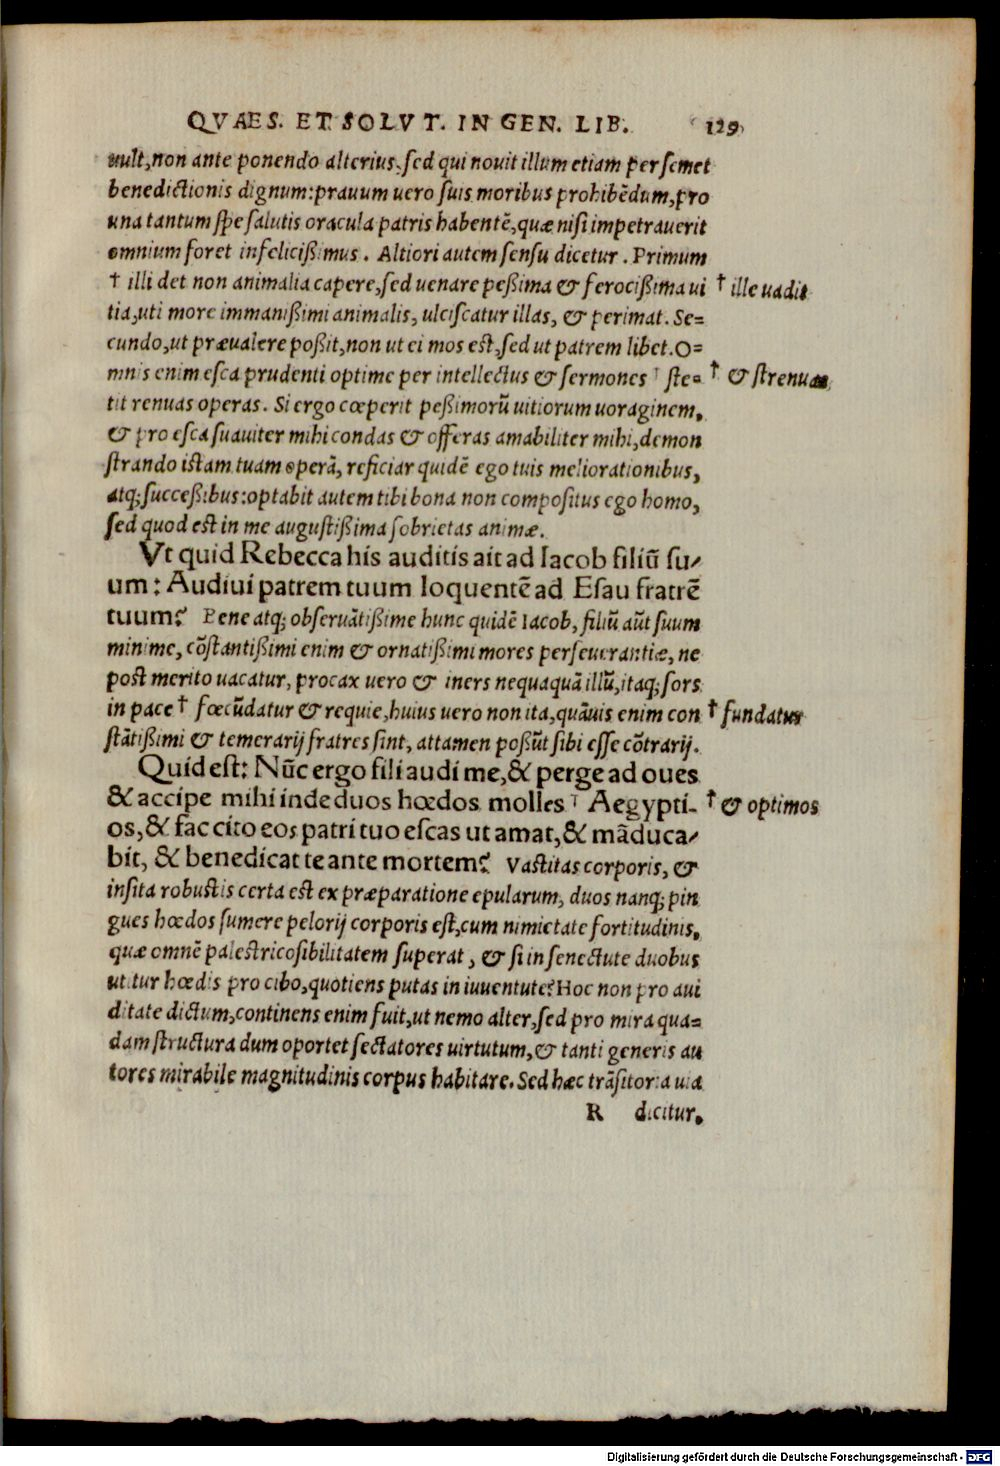 QVAES. ET. SOLVT. IN GEN. LIB. 129
uult, non ante ponendo alterius, sed qui nouit illum etiam per semet
benedictionis dignum: prauum uero suis moribus prohibēdum, pro
una tantum spe salutis oracula patris habentē, quæ nisi impetrauerit
omnium foret infelicißimus. Altiori autem sensu dicetur. Primum
† illi det non animalia capere, sed uenare peßima & ferocißima ui † ille uadit
tia, uti more immanißimi animalis, ulciscatur illas, & perimat. Se=
cundo, ut præualere poßit, non ut ei mos est, sed ut patrem libet. O=
mnis enim esca prudenti optime per intellectus & sermones † ste= † & strenuas
tit renuas operas. Si ergo cœperit peßimorū uitiorum uoraginem,
& pro esca suauiter mihi condas & offeras amabiliter mihi, demon
strando istam tuam operā, reficiar quidē ego tuis meliorationibus,
atq; succeßibus: optabit autem tibi bona non compositus ego homo,
sed quod est in me augustißima sobrietas animæ.
Vt quid Rebecca his auditis ait ad Iacob filiū su-
um: Audiui patrem tuum loquentē ad Esau fratrē
tuum? Pene atq; obseruātißime hunc quidē Iacob, filiū aūt suum
minime, cōstantißimi enim & ornatißimi mores perseuerantiæ, ne
post merito uacatur, procax uero & iners nequaquā illū, itaq; sors
in pace † fœcūdatur & requie, huius uero non ita, quāuis enim con † fundatur
stātißimi & temerarij fratres sint, attamen poßūt sibi esse cōtrarij.
Quid est: Nūc ergo fili audi me, & perge ad oues
& accipe mihi inde duos hœdos molles † Aegypti- † & optimos
os, & fac cito eos patri tuo escas ut amat, & māduca-
bit, & benedicat te ante mortem? Vastitas corporis, &
insita robustis certa est ex præparatione epularum, duos nanq; pin
gues hœdos sumere pelorij corporis est, cum nimietate fortitudinis,
quæ omnē palestricosibilitatem superat, & si in senectute duobus
utitur hœdis pro cibo, quotiens putas in iuuentute? Hoc non pro aui
ditate dictum, continens enim fuit, ut nemo alter, sed pro mira qua=
dam structura dum oportet sectatores uirtutum, & tanti generis au
tores mirabile magnitudinis corpus habitare. Sed hæc trāsitoria uia
R dicitur,
Digitalisierung gefördert durch die Deutsche Forschungsgemeinschaft - DFG